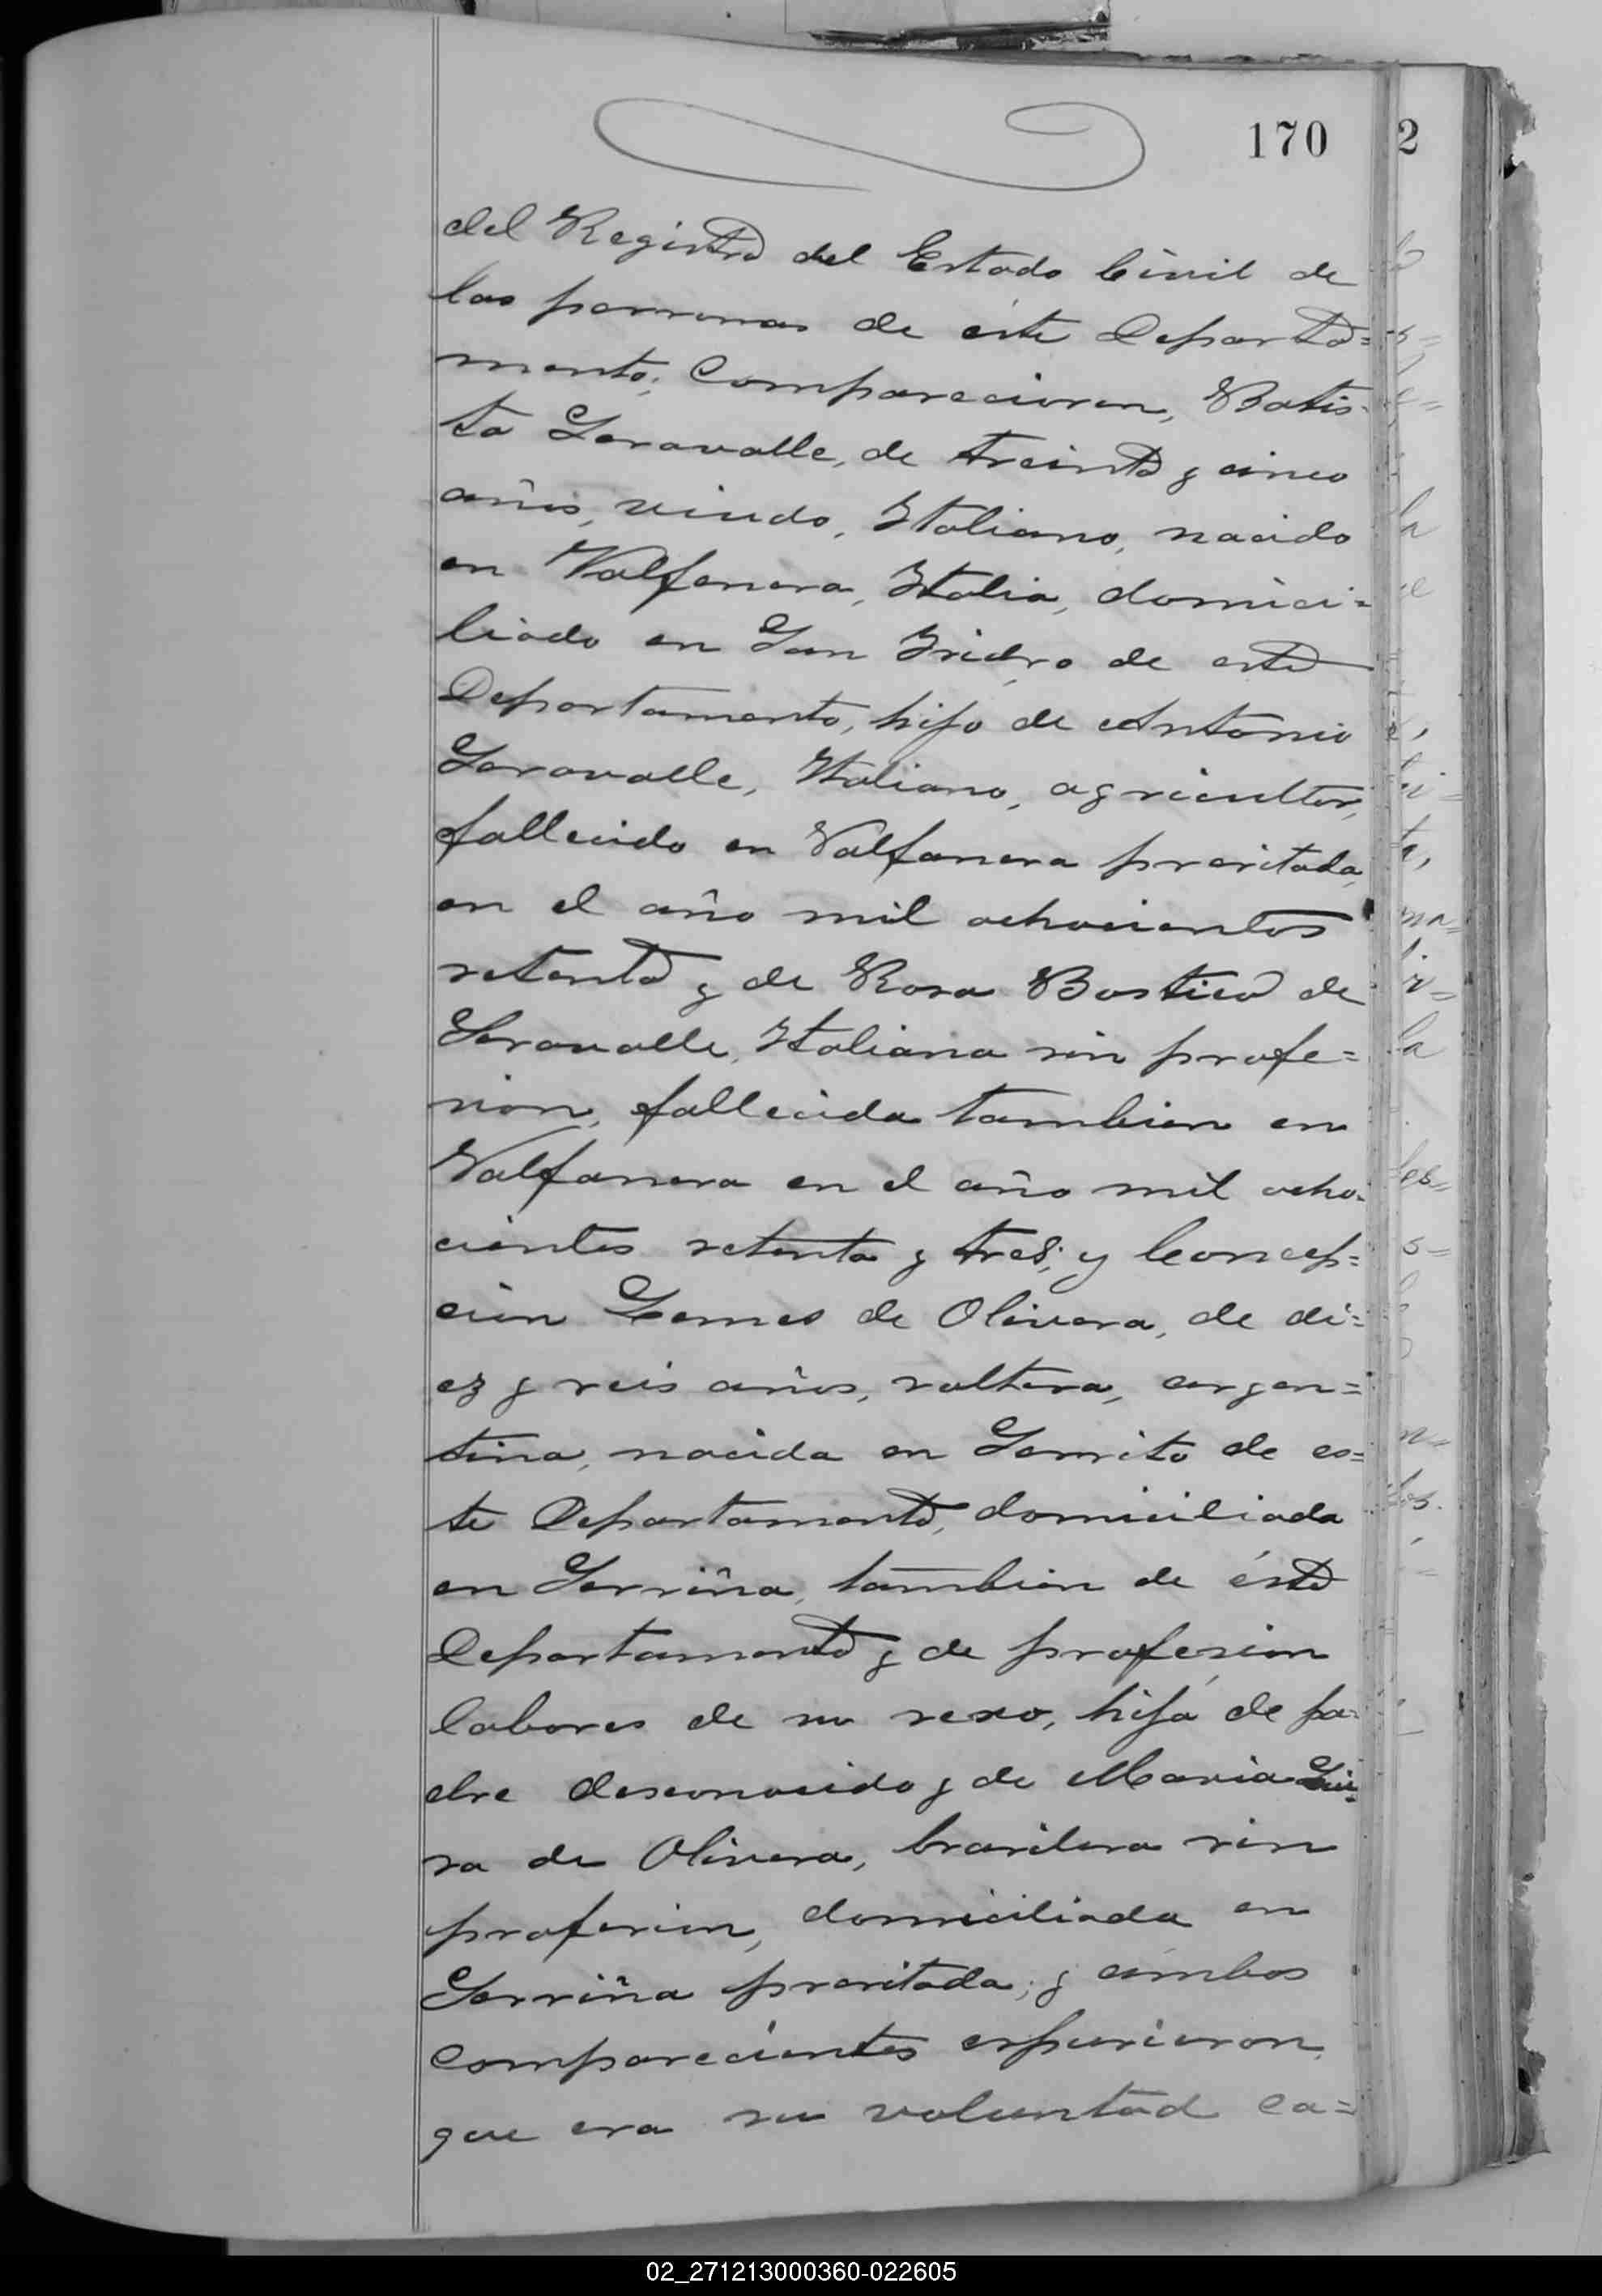 170 2
del Registro del Estado Civil de
las personas de éste Departa=
mento; Comparecieron, Batis-
ta Saravalle, de treinta y cinco
años, viudo, Italiano, nacido
en Valfenera, Italia, domici=
liado en San Isidro de este
Departamento, hijo de Antonio
Saravalle, Italiano, agricultor,
fallecido en Valfanera precitada,
en el año mil ochocientos
setenta y de Rosa Bostico de
Saravalle, Italiana sin profe=
sion, fallecida tambien en
Valfanera en el año mil ocho-
cientos setenta y tres; y Concep=
cion Gomes de Olivera, de di=
ez y seis años, soltera, argen=
tina, nacida en Serrito de es=
te Departamento, domiciliada
en Serriña, tambien de éste
Departamento y de profesion
labores de su sexo, hija de pa-
dre desconocido y de Maria
ra de Olivera, brasilera sin
profesion, domiciliada en
Serriña precitada; y ambos
comparecientes expusieron,
que era su voluntad ca=
02_271213000360-022605